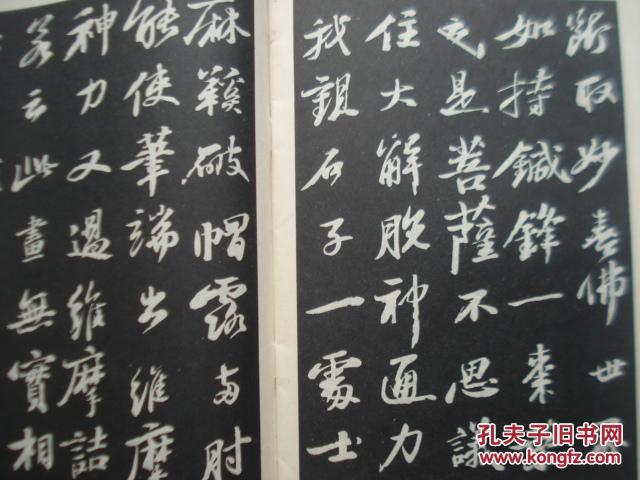 斷取妙喜佛世
如持鍼鋒一棗
云是菩薩不思議
住大解脫神通力
我觀石子一處士
麻鞵破帽露兩肘
能使筆端出維摩
神力又過維摩詰
若云此畫無實相
孔夫子旧书网